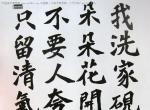 我洗家硯
朵朵花開
不要人夸
只留清氣